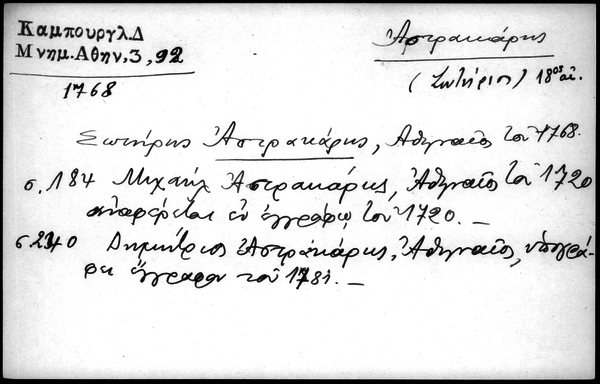 Καμπουργλ.Δ
Μνημ.Αθην.3,92
1768
Ἀστρακάρης
(Σωτήριος) 18ος αἰ.
Σωτήρης Ἀστρακάρης, Ἀθηναῖος τοῦ 1768.
σ.184 Μιχαήλ Ἀστρακάρης, Ἀθηναῖος τοῦ 1720
ἀναφέρεται ἐν ἐγγράφῳ τοῦ 1720. —
σ.240 Δημήτριος Ἀστρακάρης, Ἀθηναῖος, ὑπογρά-
φει ἔγγραφον τοῦ 1781. —